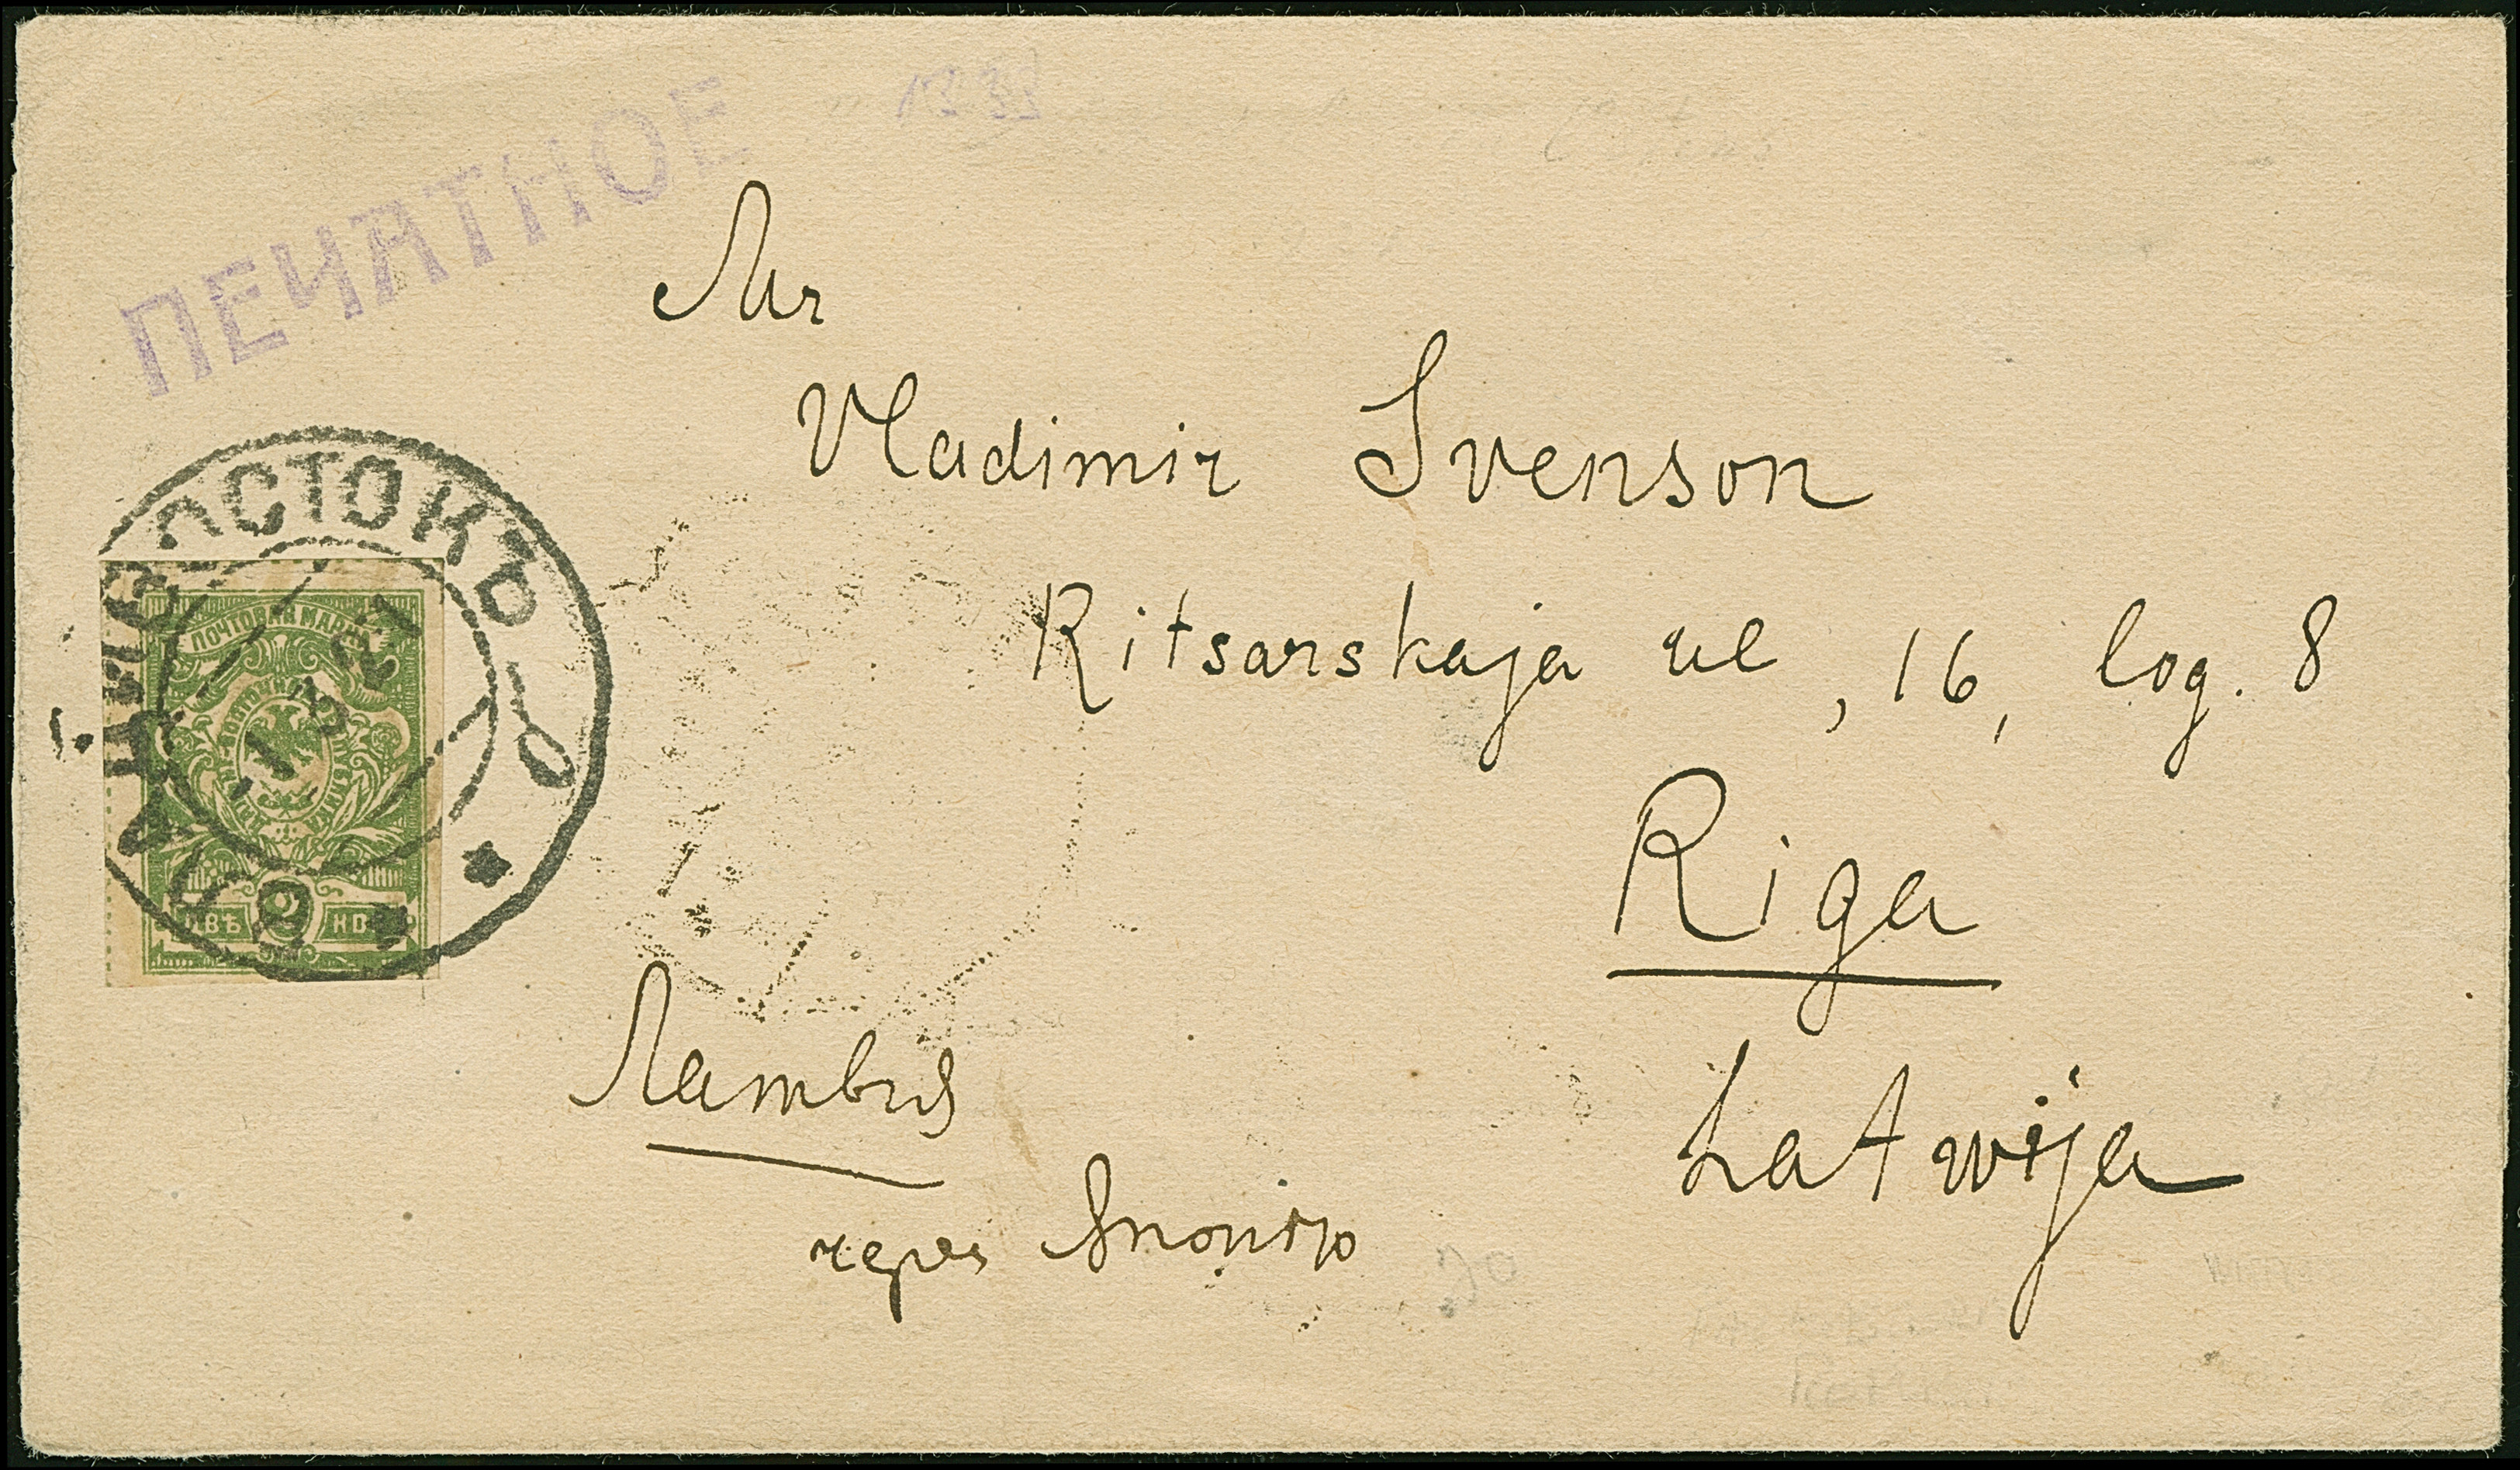 ПЕЧАТНОЕ
Mr
Vladimir Svenson
Ritsarskaja ul, 16, log. 8
Riga
Latwija
Латвия
через Японiю
ВЛАДИВОСТОКЪ
ПОЧТОВАЯ МАРКА
ДВѢ 2 КОП